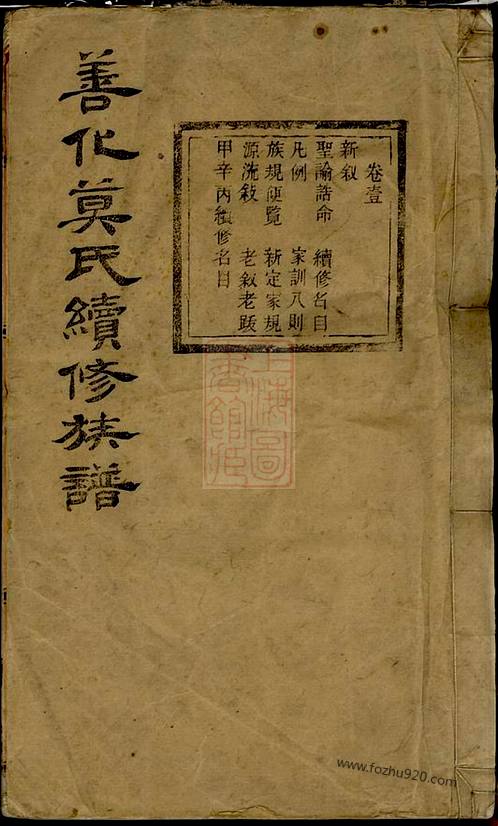 善化莫氏續修族譜
卷壹
新叙
聖諭誥命 續修名目
凡例 家訓八則
族規便覽 新定家規
源流敘 老敘老跋
甲辛丙續修名目
上海圖書館藏
www.fozhu920.com